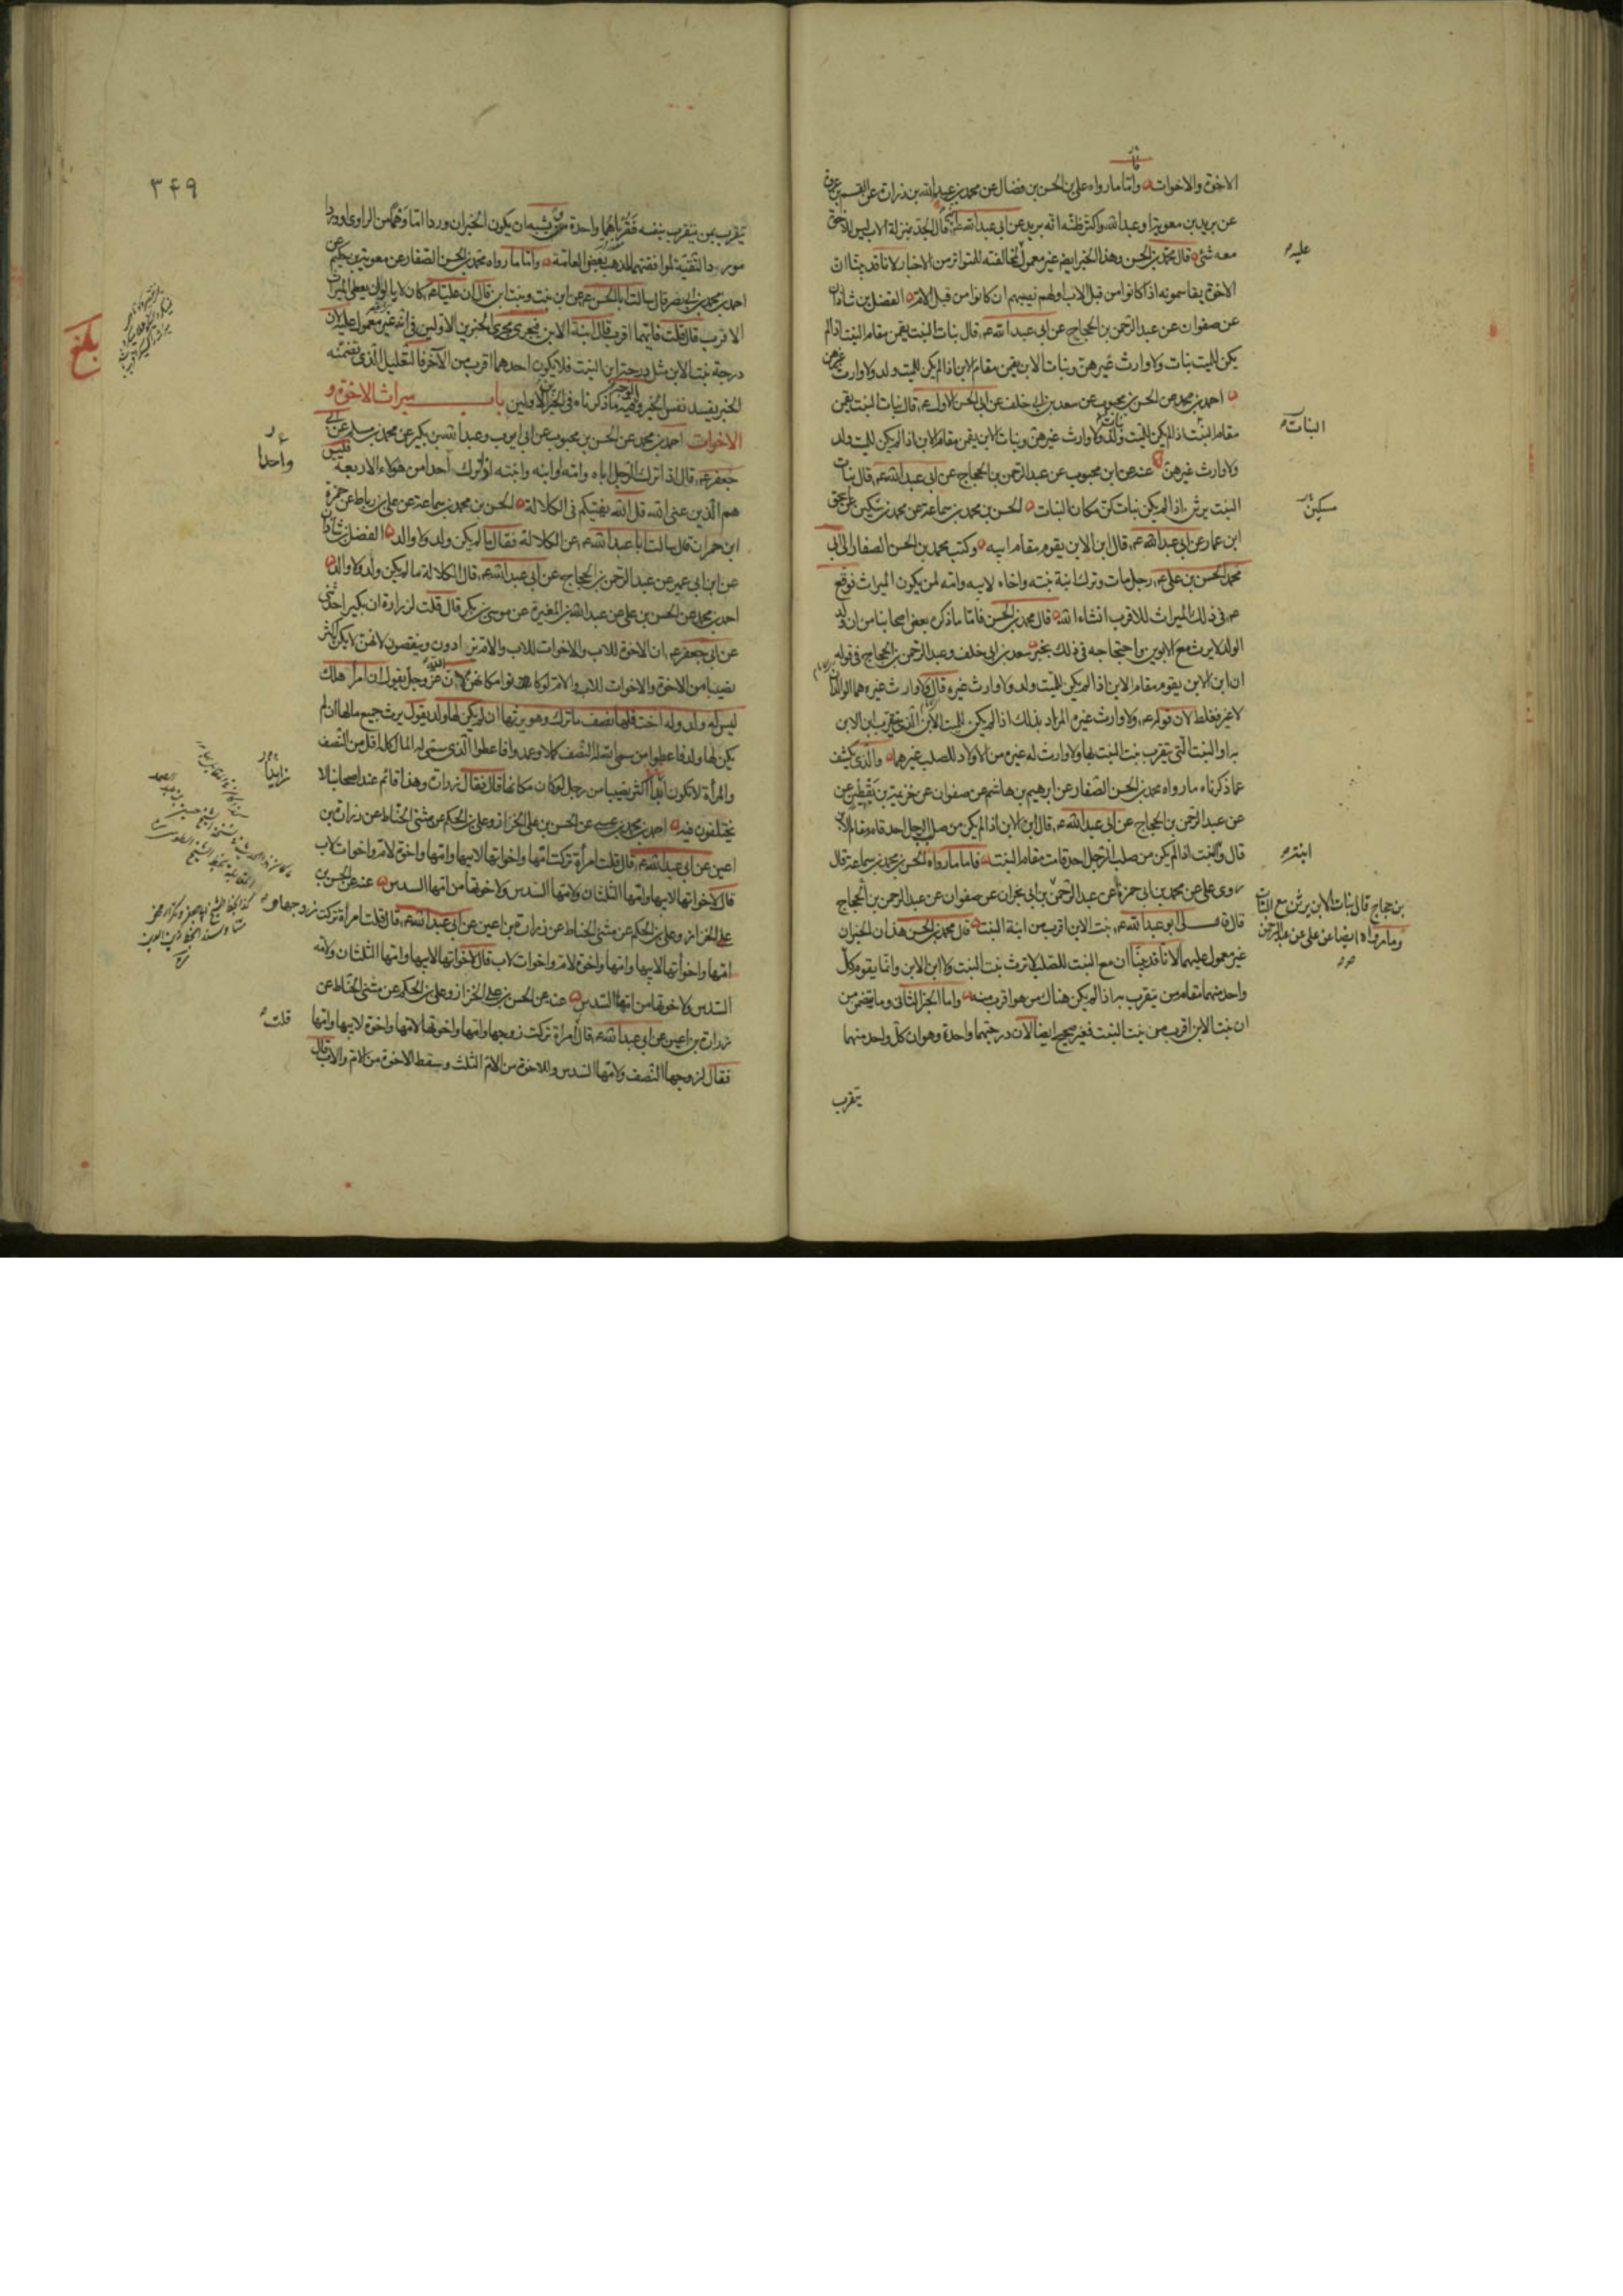 الاخوة والاخوات واما ما رواه على بن الحسن بن فضال عن محمد بن عبد الله بن زرارة عن القسم بن عروة
عن بريد بن معوية او عبد الله واكثر ظنه انه بريد عن ابى عبد الله قال الجد بمنزلة الاب ليس للاخوة
معه شئ قال محمد بن الحسن وهذا الخبر ايضا غير معمول لمخالفته للمتواتر من الاخبار لانا قد بينا ان
الاخوة يقاسمونه اذا كانوا من قبل الاب ولهم نصيبهم ان كانوا من قبل الام الفضل بن شاذان
عن صفوان عن عبد الرحمن بن الحجاج عن ابى عبد الله ع قال بنات البنت يقمن مقام البنت اذا لم
يكن للميت بنات ولا وارث غيرهن وبنات الابن يقمن مقام الابن اذا لم يكن للميت ولد ولا وارث غيرهن
احمد بن محمد عن الحسن بن محبوب عن سعد بن ابى خلف عن ابى الحسن الاول ع قال بنات البنت يقمن
مقام البنت اذا لم يكن للميت ولد ولا وارث غيرهن وبنات الابن يقمن مقام الابن اذا لم يكن للميت ولد
ولا وارث غيرهن عنه عن ابن محبوب عن عبد الرحمن بن الحجاج عن ابى عبد الله ع قال بنات
البنت يرثن اذا لم يكن بنات كن مكان البنات الحسن بن محمد بن سماعة عن محمد بن سكين عن اسحق
ابن عمار عن ابى عبد الله ع قال ابن الابن يقوم مقام ابيه وكتب محمد بن الحسن الصفار الى ابى
محمد الحسن بن على ع رجل مات وترك ابنة بنته واخاه لابيه وامه لمن يكون الميراث فوقع
ع فى ذلك الميراث للاقرب انشاء الله قال محمد بن الحسن فاما ما ذكره بعض اصحابنا من ان ولد
الولد لا يرث مع الابوين واحتجاجه فى ذلك بخبر سعد بن ابى خلف وعبد الرحمن بن الحجاج فى قوله
ان ابن الابن يقوم مقام الابن اذا لم يكن للميت ولد ولا وارث غيره قال ولا وارث غيره هما الوالدان
لا غير فغلط لان قوله ع ولا وارث غيره المراد بذلك اذا لم يكن للميت الابن الذى يتقرب ابن الابن
به او البنت التى يتقرب بنت البنت بها ولا وارث له غيره من الاولاد للصلب غيرهما والذى يكشف
عما ذكرناه ما رواه محمد بن الحسن الصفار عن ابرهيم بن هاشم عن صفوان عن خزيمة بن يقطين عن
عن عبد الرحمن بن الحجاج عن ابى عبد الله ع قال ابن الابن اذا لم يكن من صلب الرجل احد قام مقام الابن
قال وابنة البنت اذا لم يكن من صلب الرجل احد قامت مقام البنت فاما ما رواه الحسن بن محمد بن سماعة قال
روى على عن محمد بن ابى حمزة عن عبد الرحمن بن ابى نجران عن صفوان عن عبد الرحمن بن الحجاج
قال قال لى ابو عبد الله ع بنت الابن اقرب من ابنة البنت قال محمد بن الحسن هذان الخبران
غير معمول عليهما لانا قد بينا ان مع البنت للصلب لا ترث بنت البنت ولا ابن الابن وانما يقوم كل
واحد منهما مقام من يتقرب به اذا لم يكن هناك من هو اقرب منه واما الخبر الثانى وما يتضمن من
ان بنت الابن اقرب من بنت البنت فغير صحيح ايضا لان درجتهما واحدة وهو ان كل واحد منهما
يتقرب
عليه
البنات
سكين
ابنة
بن حجاج قال بنات الابن يرثن مع البنات
وما رواه ايضا عن على عن عبد الرحمن
٣٤٩
يتقرب بمن يتقرب بنفسه فقرباهما واحدة ويشبه ان يكون الخبران وردا اما وهما من الراوى او وردا
مورد التقية لموافقتهما لمذهب بعض العامة واما ما رواه محمد بن الحسن الصفار عن معوية بن حكيم عن
احمد بن محمد بن ابى نصر قال سالت ابا الحسن ع عن ابن بنت وبنت ابن قال ان عليا ع كان لا يالوان يعطى الميراث
الاقرب قال قلت فايهما اقرب قال ابنة الابن فيجرى مجرى الخبرين الاولين فى انه غير معمول عليه لان
درجة بنت الابن مثل درجة ابن البنت فلا يكون احدهما اقرب من الآخر فالتعليل الذى تضمنه
الخبر يفسد نفس الخبر والوجه فيه ما ذكرناه فى الخبرين الاولين باب ميراث الاخوة و
الاخوات احمد بن محمد عن الحسن بن محبوب عن ابى ايوب وعبد الله بن بكير عن محمد بن مسلم عن ابى
جعفر ع قال اذا ترك الرجل اباه وامه او ابنه وابنته اذا ترك احدا من هؤلاء الاربعة فليس
هم الذين عنى الله قل الله يفتيكم فى الكلالة الحسن بن محمد بن سماعة عن على بن رباط عن حمزة
ابن حمران قال سالت ابا عبد الله ع عن الكلالة فقال ما لم يكن ولد ولا والد الفضل بن شاذان
عن ابن ابى عمير عن عبد الرحمن بن الحجاج عن ابى عبد الله ع قال الكلالة ما لم يكن ولد ولا والد
احمد بن محمد عن الحسن بن على عن عبد الله بن المغيرة عن موسى بن بكر قال قلت لزرارة ان بكيرا حدثنى
عن ابى جعفر ع ان الاخوة للاب والاخوات للاب والام يزادون وينقصون لانهن لا يكن اكثر
نصيبا من الاخوة والاخوات للاب والام لو كانوا مكانهن لان الله عز وجل يقول ان امرؤ هلك
ليس له ولد وله اخت فلها نصف ما ترك وهو يرثها ان لم يكن لها ولد يقول يرث جميع مالها ان لم
يكن لها ولد فاعطوا من سمى الله له النصف كملا وعمدوا فاعطوا الذى سمى له المال كله اقل من النصف
والمرأة لا تكون ابدا اكثر نصيبا من رجل لو كان مكانها قال فقال زرارة وهذا قائم عند اصحابنا لا
يختلفون فيه احمد بن محمد بن عيسى عن الحسن بن على الخزاز وعلى بن الحكم عن مثنى الحناط عن زرارة بن
اعين عن ابى عبد الله ع قال قلت امرأة تركت امها واخواتها لابيها وامها واخوة لام واخوات لاب
قال لاخواتها لابيها وامها الثلثان ولامها السدس ولاخوتها من امها السدس عنه عن الحسن بن
على الخزاز وعلى بن الحكم عن مثنى الحناط عن زرارة بن اعين عن ابى عبد الله ع قال قلت امرأة تركت زوجها و
امها واخواتها لابيها وامها واخوة لام واخوات لاب قال لاخواتها لابيها وامها الثلثان ولامها
السدس ولاخوتها من امها السدس عنه عن الحسن بن على الخزاز وعلى بن الحكم عن مثنى الحناط عن
زرارة بن اعين عن ابى عبد الله ع قال امرأة تركت زوجها وامها واخوتها لامها واخوة لابيها وامها
فقال لزوجها النصف ولامها السدس وللاخوة من الام الثلث وسقط الاخوة من الام والاب قال
بلغ
واحدا
زايدا
قلت